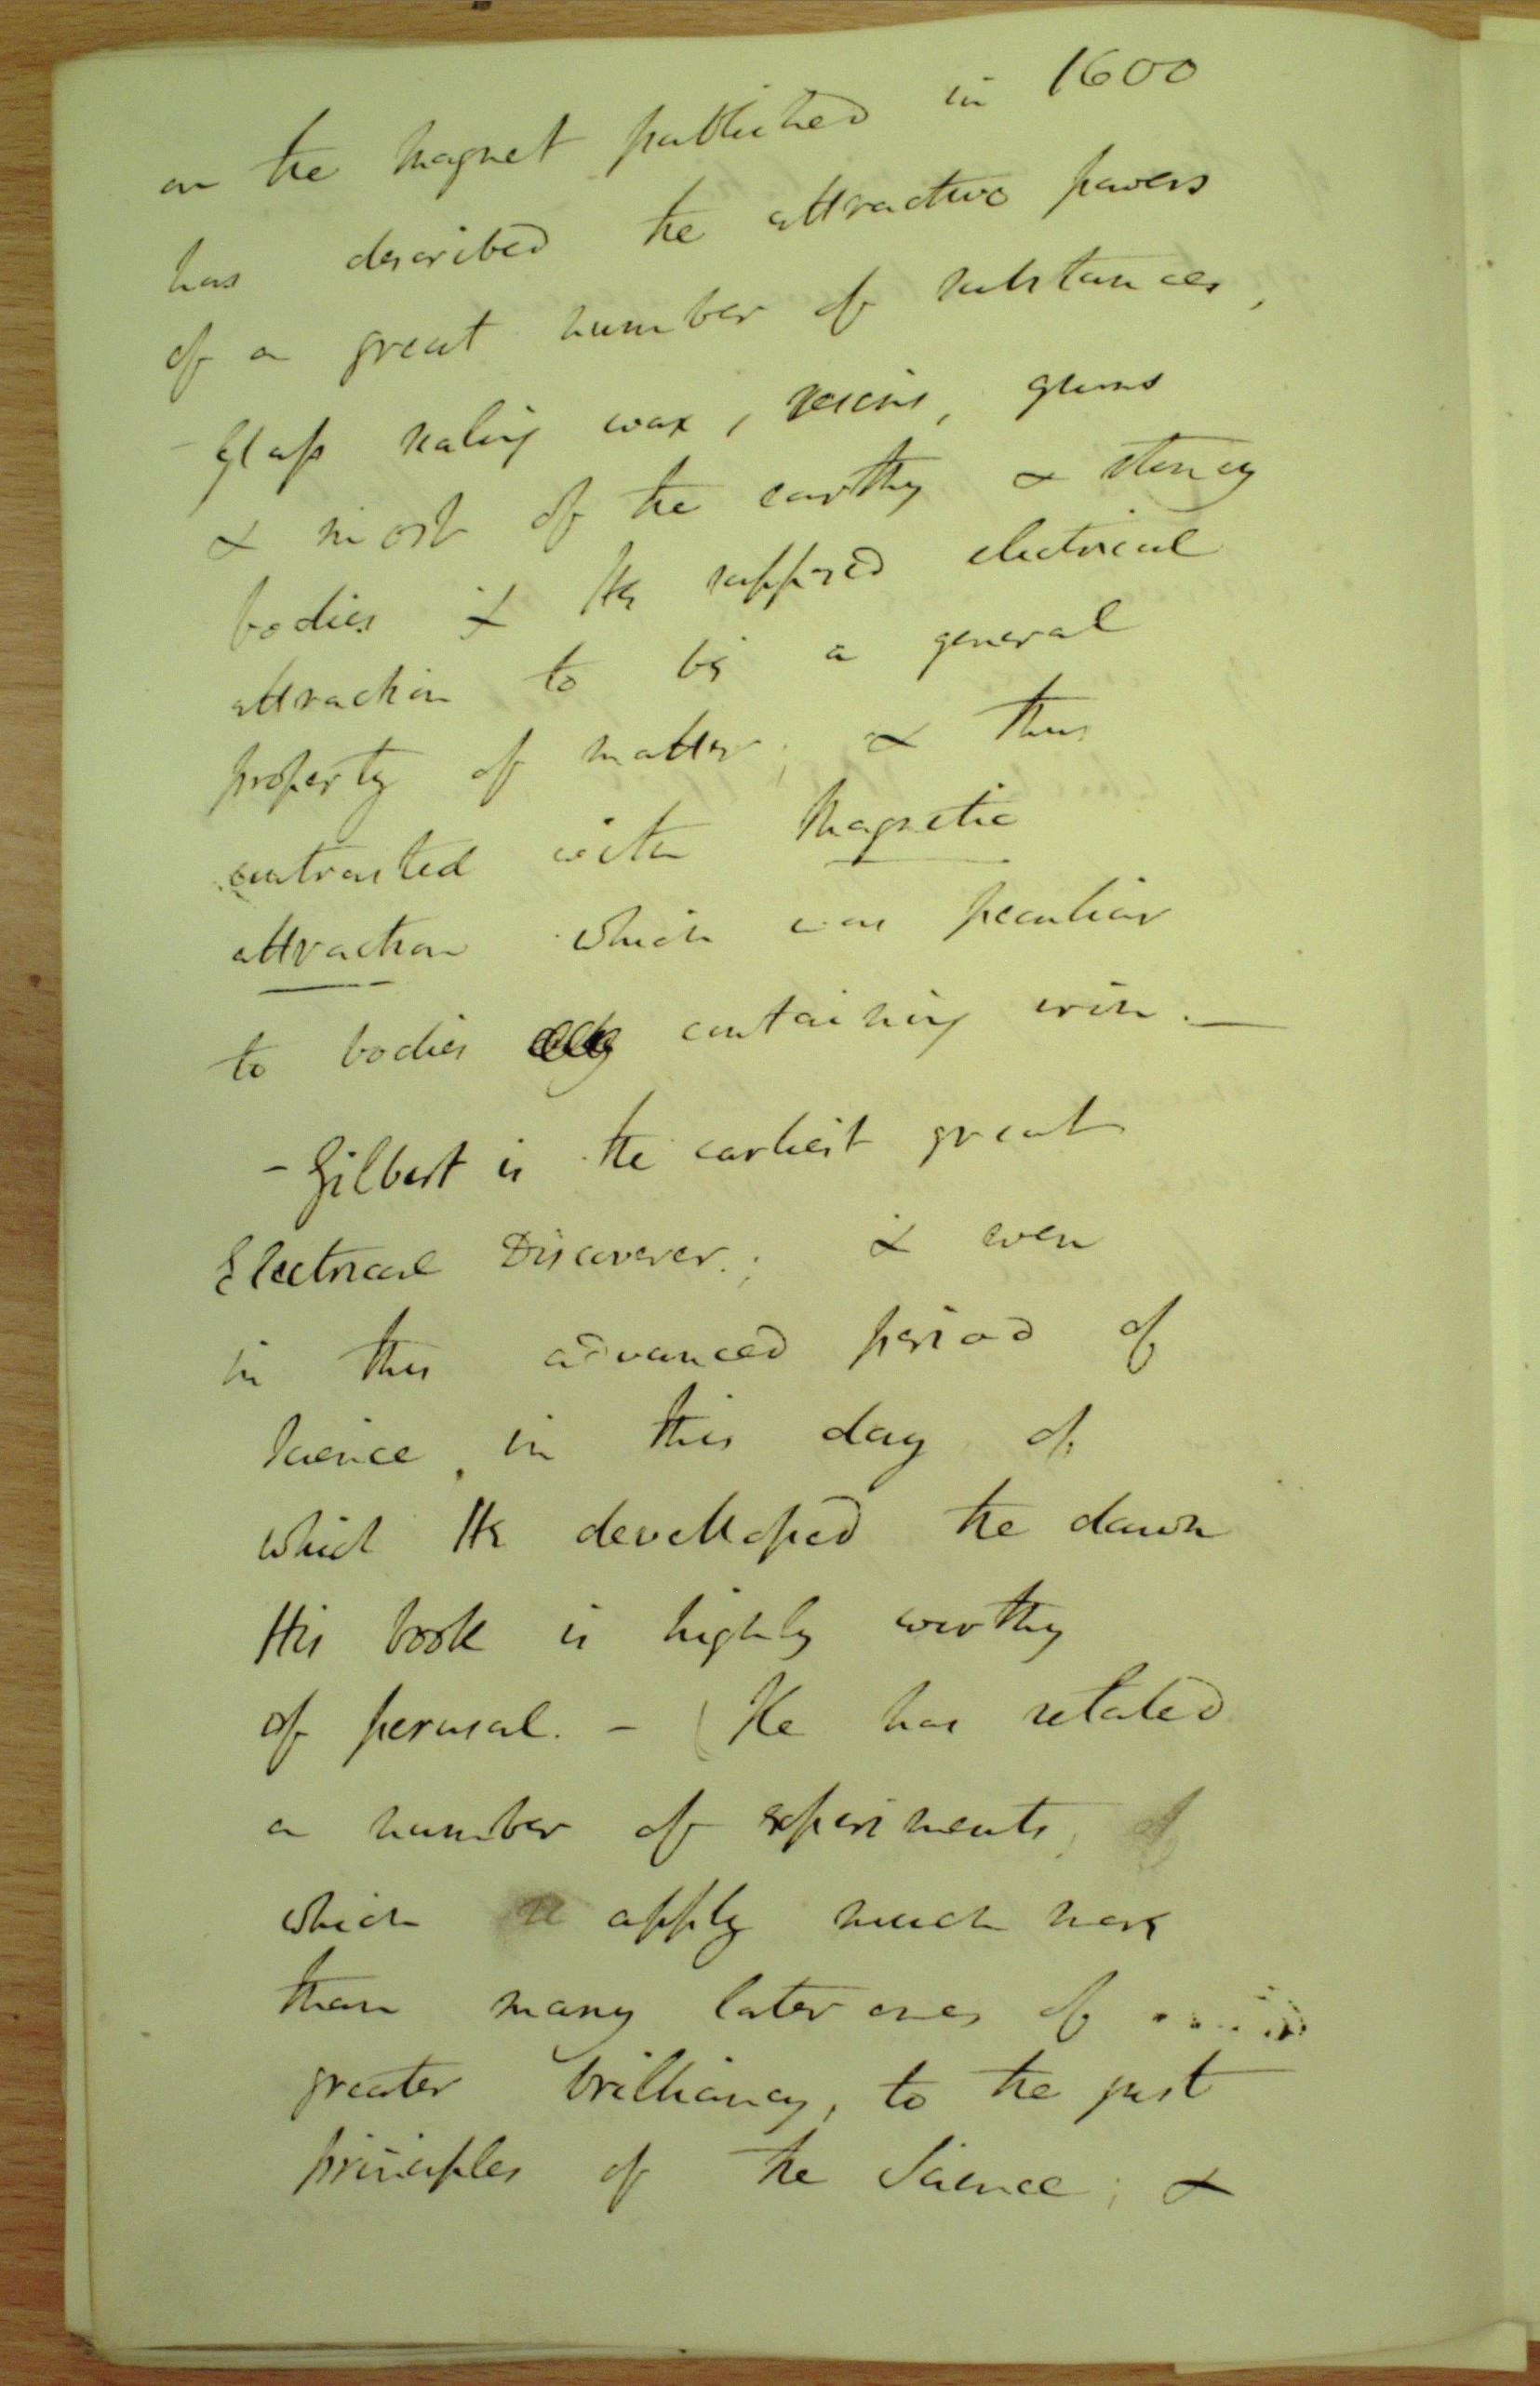 on the Magnet published in 1600
has described the attractive powers
of a great number of substances,
- Glass sealing wax, resins, gums
& most of the earthy & stoney
bodies & He supposed electrical
attraction to be a general
property of matter; & thus
contrasted with Magnetic
attraction which was peculiar
to bodies containing iron. —
- Gilbert is the earliest great
Electrical Discoverer; & even
in this advanced period of
Science, in this day of
which He developed the dawn
His book is highly worthy
of perusal. - (He has related
a number of experiments,
which apply much more
than many later ones of
greater brilliancy, to the just
principles of the Science; &